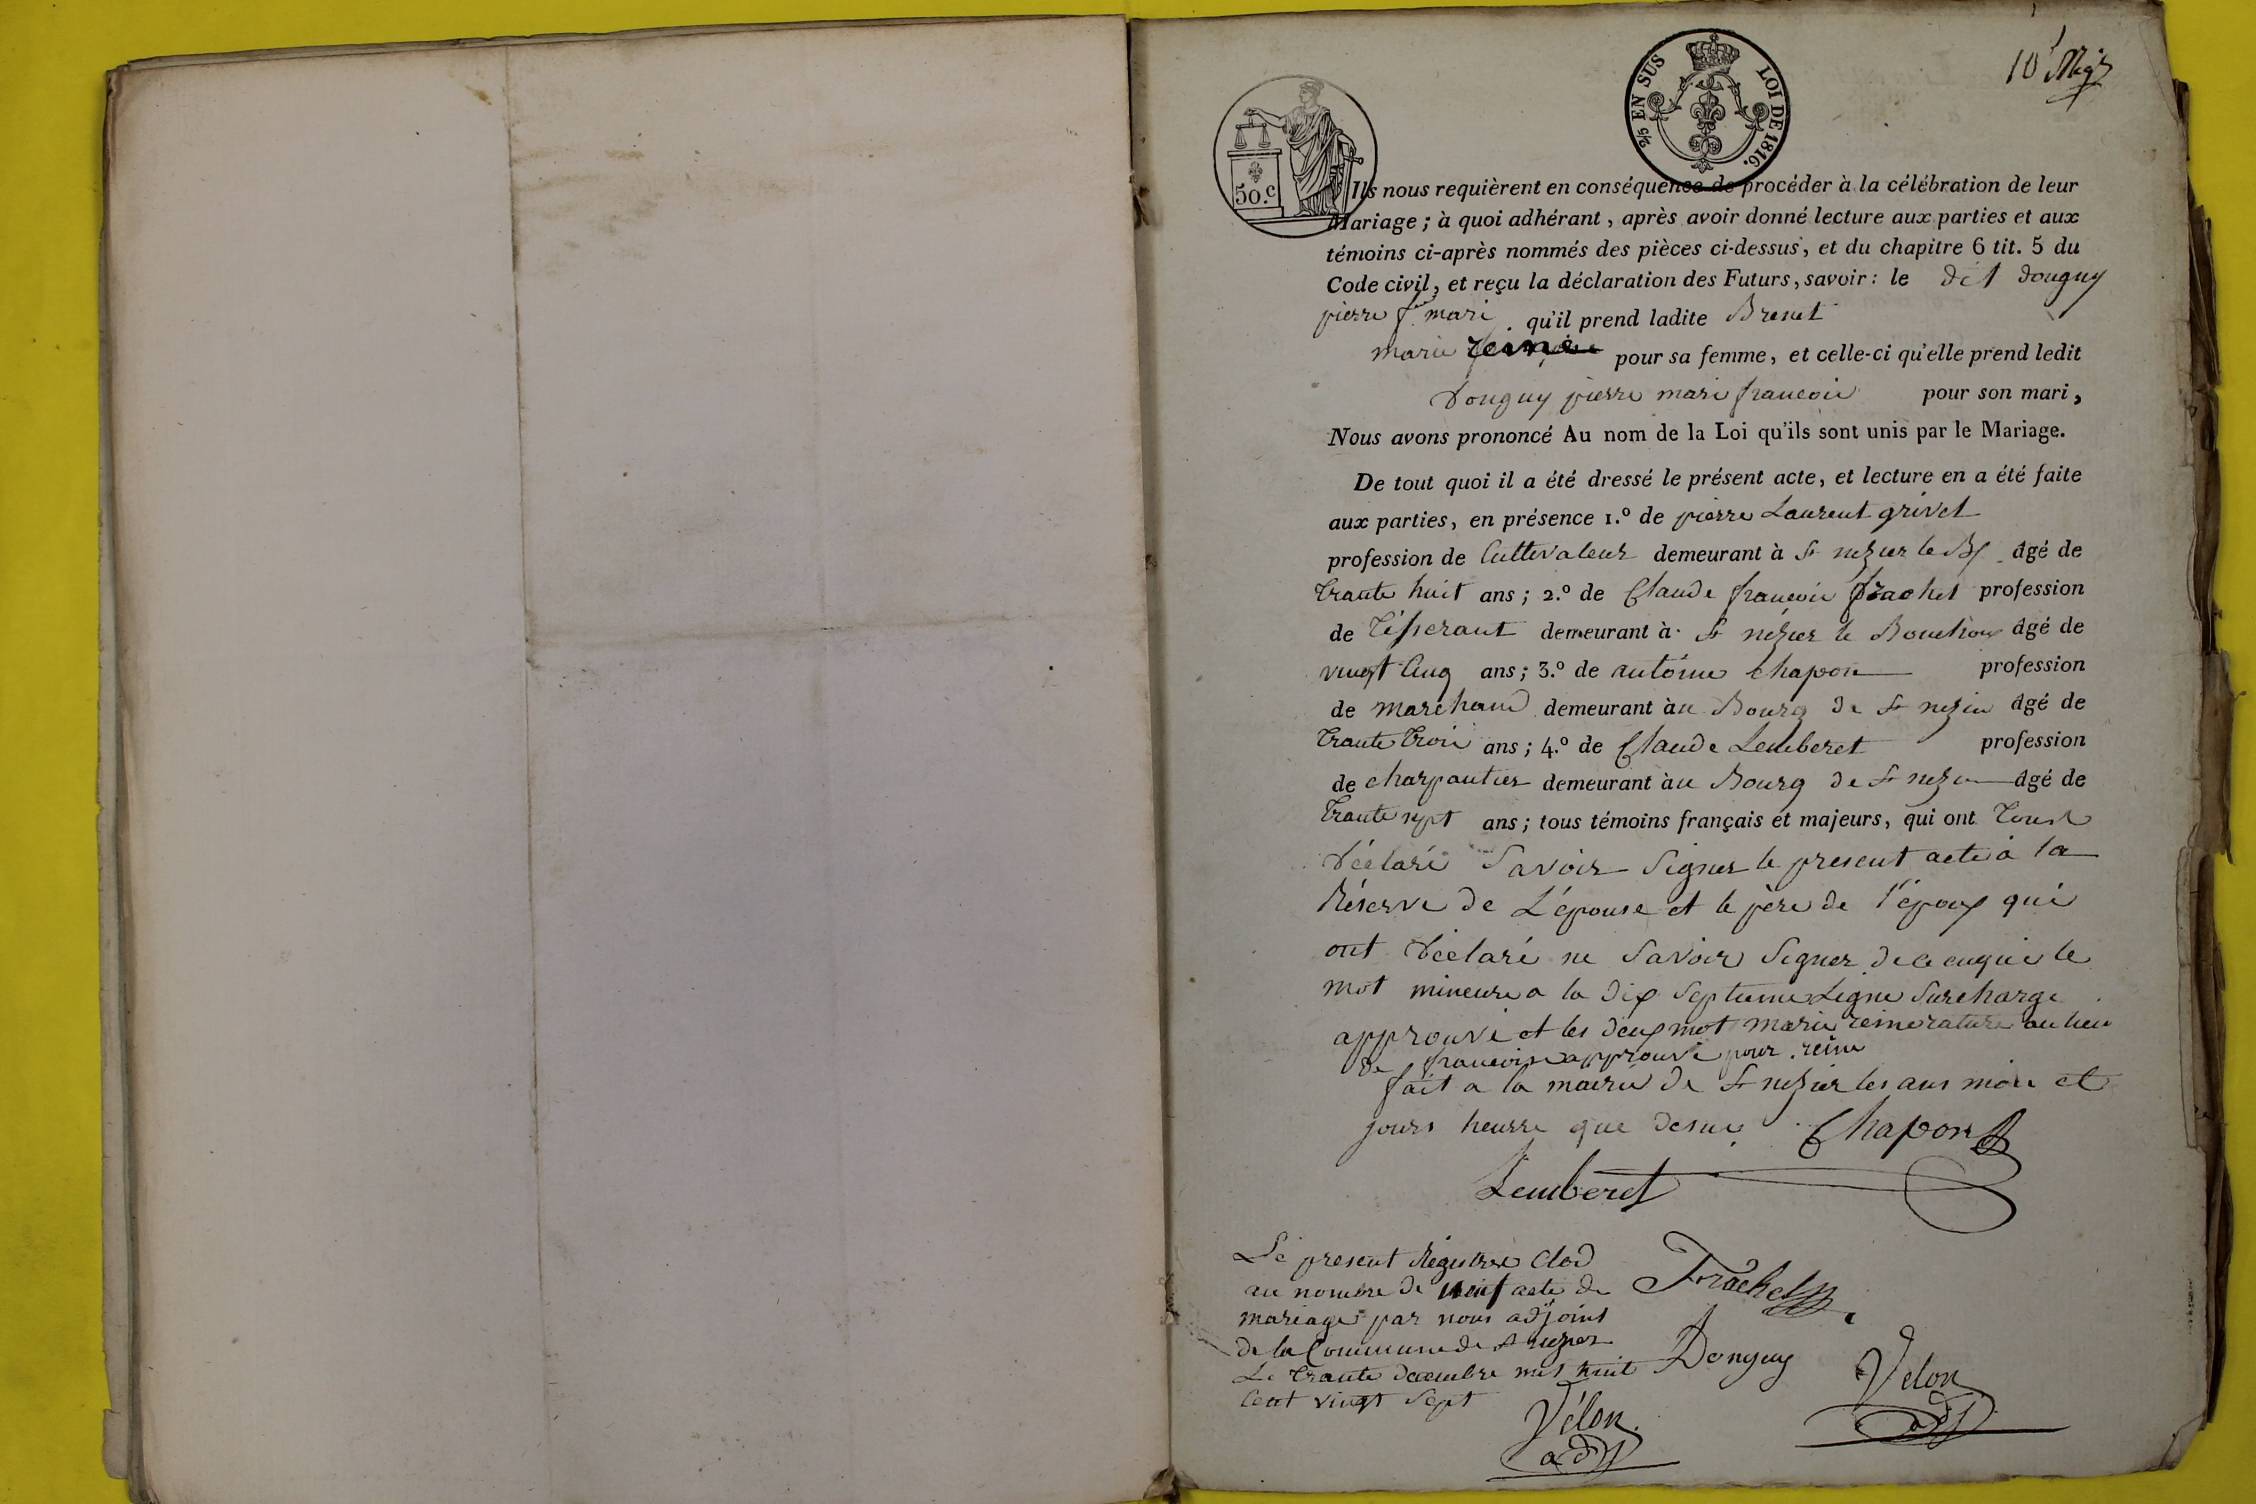 10
2/5 EN SUS LOI DE 1816.
50.c
Ils nous requièrent en conséquence de procéder à la célébration de leur
Mariage ; à quoi adhérant, après avoir donné lecture aux parties et aux
témoins ci-après nommés des pièces ci-dessus, et du chapitre 6 tit. 5 du
Code civil, et reçu la déclaration des Futurs, savoir : le dit douguy
pierre f mari qu'il prend ladite Brenet
marie reine pour sa femme, et celle-ci qu'elle prend ledit
Douguy pierre mari francois pour son mari,
Nous avons prononcé Au nom de la Loi qu'ils sont unis par le Mariage.
De tout quoi il a été dressé le présent acte, et lecture en a été faite
aux parties, en présence 1.º de pierre Laurent grivet
profession de Cultivateur demeurant à St nizier le Bx âgé de
trante huit ans ; 2.º de Claude francois frachet profession
de tisserant demeurant à St nizier le Bouchoux âgé de
vingt Cinq ans ; 3.º de antoine chapon profession
de marchand demeurant àu Bourg de St nizier âgé de
trante trois ans ; 4.º de Claude Lemberet profession
de charpantier demeurant àu Bourg de St nizier âgé de
trante sept ans ; tous témoins français et majeurs, qui ont tous
déclaré Savoir Signer le present acte à la
Réserve de L'épouse et le père de l'époux qui
ont déclaré ne Savoir Signer de ce enquis le
mot mineure a la dix Septieme Ligne Surcharge
approuvé et les deux mot marie reine rature au lieu
de francoise approuvé pour reine
fait a la mairie de St nizier les ans mois et
jours heurre que desus Chapon
Lemberet
Le present Registre Clod
au nombre de neuf acte de
mariage par nous adjoint
de la Commune de St nizier
Le trante decembre mil huit
Cent vingt Sept
Frachet
Donguy
Vélon
adj
Velon
adj